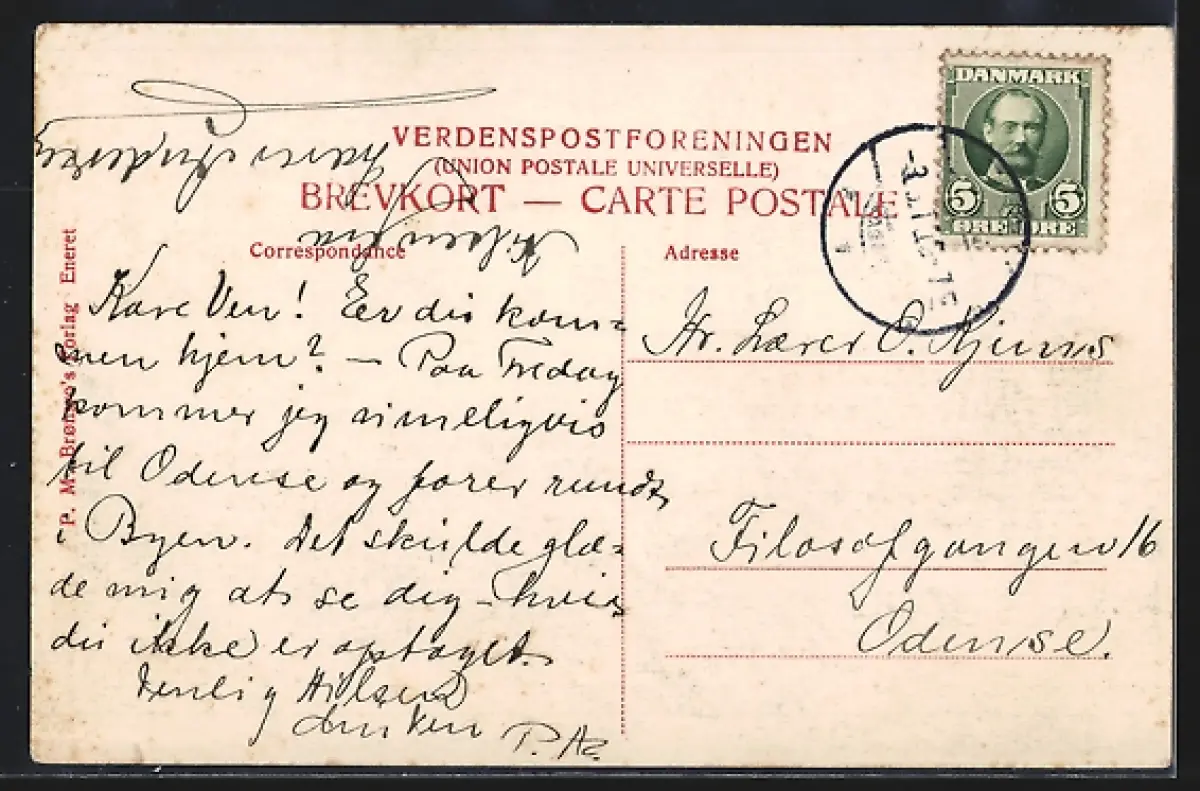 VERDENSPOSTFORENINGEN
(UNION POSTALE UNIVERSELLE)
BREVKORT — CARTE POSTALE
DANMARK
5 5
ØRE ØRE
Correspondance
Adresse
Kære Ven! Er du kom=
men hjem? — Paa Fredag
kommer jeg rimeligvis
til Odense og farer rundt
i Byen. Det skulde glæ=
de mig at se dig – hvis
du ikke er optaget.
Venlig Hilsen
din Ven
Hilsen fra
Hr. Lærer O.
Filosofgangen 16
Odense.
P. M. Brønsro's Forlag Eneret